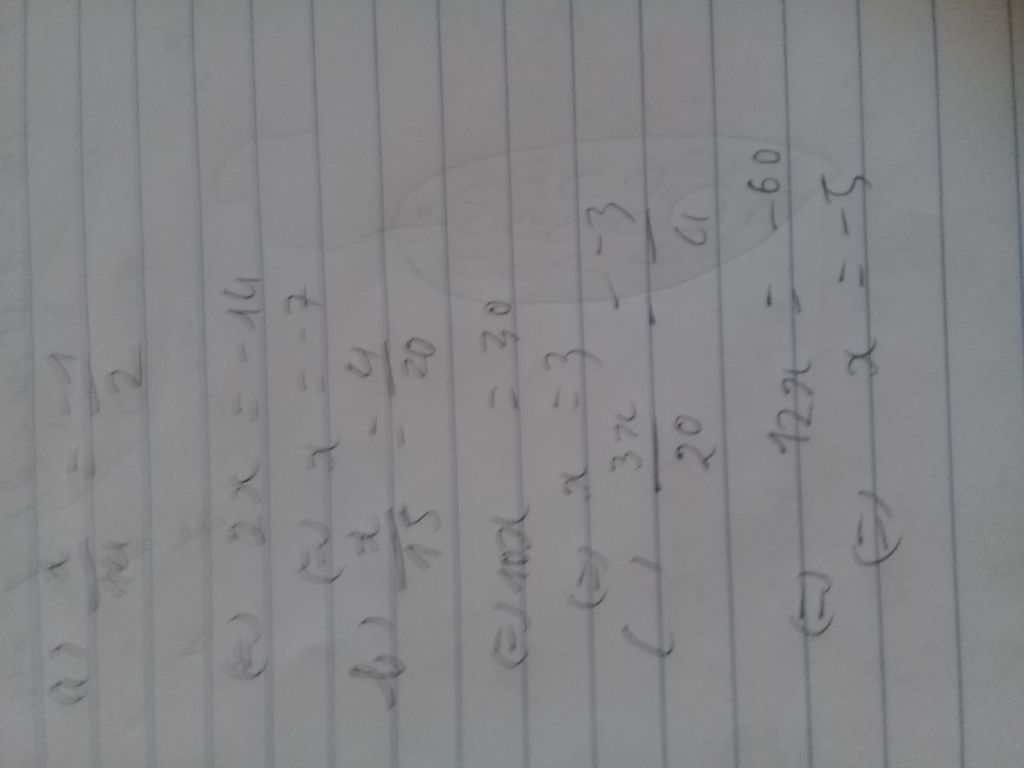 a) x/14 = -1/2
(=) 2x = -14
(=) x = -7
b) x/15 = 4/20
(=) 10x = 30
(=) x = 3
c) 3x/20 = -3/4
(=) 12x = -60
(=) x = -5